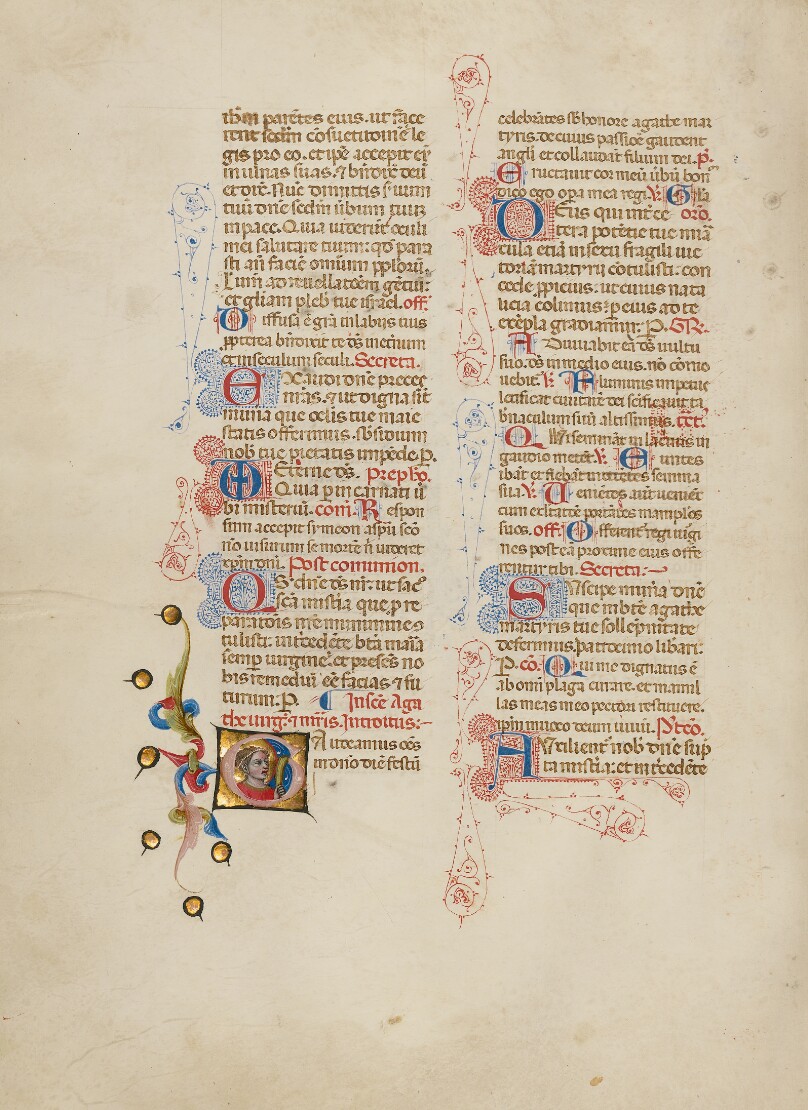 ibm parētes eius. ut face
rent scdm cōsuetudinē le
gis pro eo. et ipē accepit eū
in ulnas suas. & bn̄dixit deū
et dix̄. Nūc dimittis s̄uum
tuū dn̄e scdm ūbum tuum
in pace. Quia uiderūt oculi
mei salutare tuum: qd̄ para
sti an̄ faciē omīum pplorū.
Lum̄ ad reuelatōem gētiū:
et gl̄iam pleb̄ tue isrl̄. off.
Diffusa ē gr̄a in labijs tuis
ppterea bn̄dixit te ds̄ in et̄num
et in seculum seculi. Secreta.
Exaudi dn̄e preces
n̄ras. & ut digna sīt
mun̄a que oc̄lis tue maie
statis offerimus. sb̄sidium
nob̄ tue pietatis impēde. P.
Et̄erne ds̄. Prephō.
Quia p incarnati ū
bi misteriū. com̄. Respon
sum accepit symeon a spū scō
nō uisurum se mortē n̄ uideret
xpm̄ dn̄i. Post comunion.
Qs̄ dn̄e ds̄ nr̄. ut sac
scā mist̄ia que p re
paratōis n̄re munimine ɔ
tulisti: int̄cedēte btā maīa
semp uirgine. et presēs no
bis remediū eē facias & fu
turum. P. In scē Aga
the uirḡ. & mr̄is. Introitus:
Gaudeamus oēs
in dn̄o diē festū
celebrātes sb̄ honore agathe mar
tyris. de cuius passiōe gaudent
angli et collaudāt filium dei. p̄.
Eructauit cor meū ūbū bon̄
dico ego opa mea regi. V. Gl̄a
Deus qui int̄ cet̄ oro.
tera potētie tue mīa
cula etiā in sexu fragili uic
toriā martyrij cōtulisti: con
cede ppicius. ut cuius nata
licia colimus: p eius ad te
exēpla gradiam̄ur. P. GR.
Adiuuabit eā ds̄ uultu
suo. ds̄ in medio eius. nō cōmo
uebit̄. V. Fluminis impetus
letificat ciuitatē dei sc̄ificauit ta
bn̄aculum suū altissimus. tct̄.
Qui semināt in lacrimis in
gaudio metēt. V. Euntes
ibāt et flebāt mittētes semina
sua. V. Uenietes aut̄ ueniēt
cum exltatiōe portātes manip̄los
suos. off. Offerent̄ regi uirgi
nes post eā proxime eius offe
rentur tibi. Secreta:
Suscipe mun̄a dn̄e
que in bt̄e agathe
martyris tue sollēpnitate
deferimus. patrocinio libari:
P. cō. Qui me dignatus ē
ab omi plaga curare. et mamil
las meas meo pectori restituere.
ipm̄ inuoco deum uiuū. P̄t cō.
Auxilient̄ nob̄ dn̄e sup
ta mist̄ia: et int̄cedēte